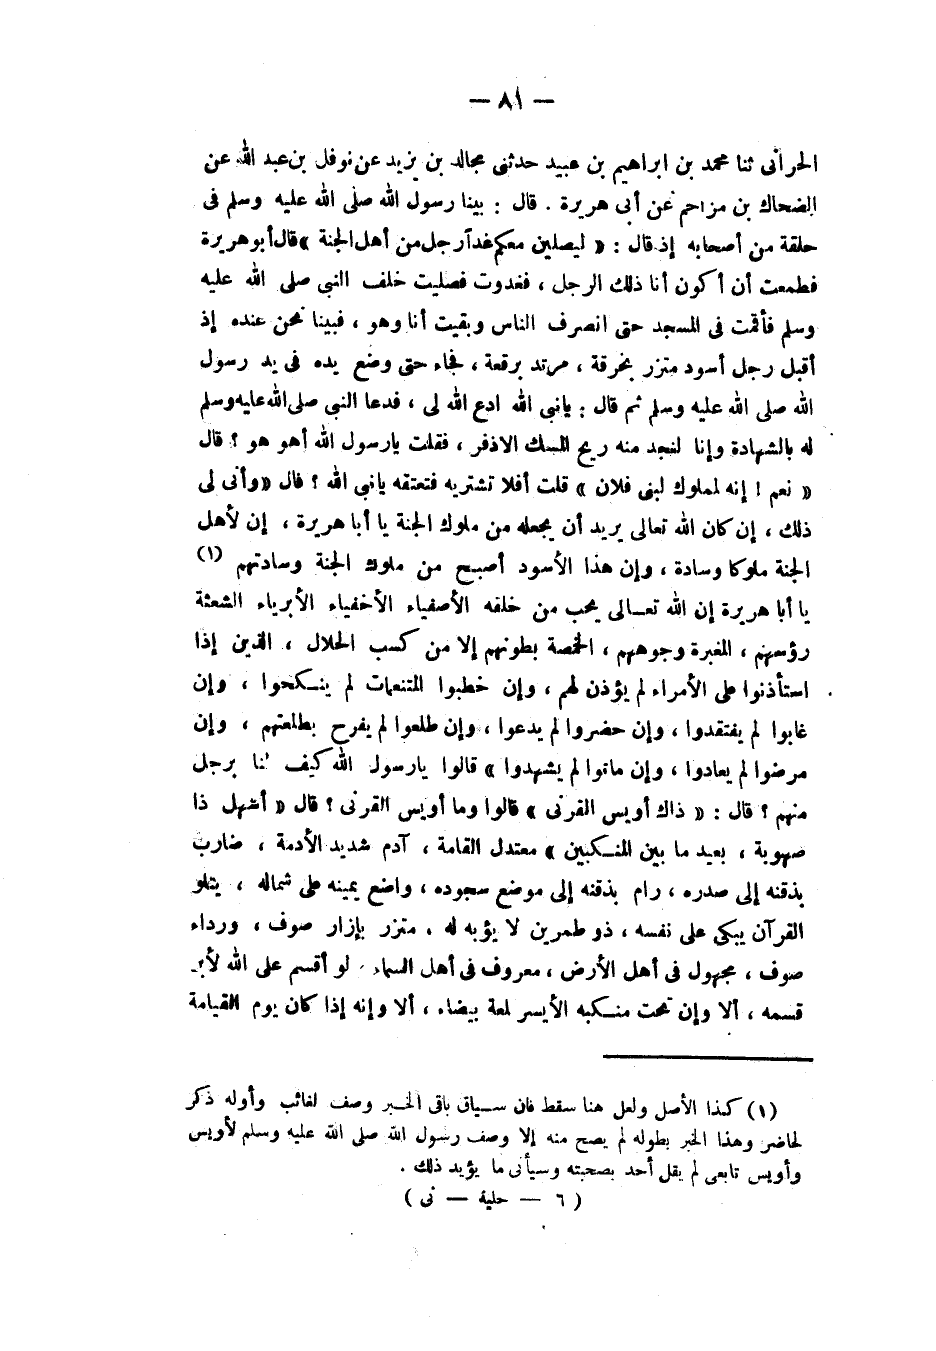 — ٨١ —
الحرانى ثنا محمد بن ابراهيم بن عبيد حدثنى مجالد بن يزيد عن نوفل بن عبد الله عن
الضحاك بن مزاحم عن أبى هريرة . قال : بينا رسول الله صلى الله عليه وسلم فى
حلقة من أصحابه إذ قال : « ليصلين معكم غداً رجل من أهل الجنة » قال أبو هريرة
فطمعت أن أكون أنا ذلك الرجل ، فغدوت فصليت خلف النبى صلى الله عليه
وسلم فأقمت فى المسجد حتى انصرف الناس وبقيت أنا وهو ، فبينا نحن عنده إذ
أقبل رجل أسود متزر بخرقة ، مرتد برقعة ، فجاء حتى وضع يده فى يد رسول
الله صلى الله عليه وسلم ثم قال : يانبى الله ادع الله لى ، فدعا النبى صلى الله عليه وسلم
له بالشهادة وإنا لنجد منه ريح المسك الاذفر ، فقلت يارسول الله أهو هو ؟ قال
« نعم ! إنه لمملوك لبنى فلان » قلت أفلا تشتريه فتعتقه يانبى الله ؟ قال « وأنى لى
ذلك ، إن كان الله تعالى يريد أن يجعله من ملوك الجنة يا أبا هريرة ، إن لأهل
الجنة ملوكا وسادة ، وإن هذا الأسود أصبح من ملوك الجنة وسادتهم (١)
يا أبا هريرة إن الله تعالى يحب من خلقه الأصفياء الأخفياء الأبرياء الشعثة
رؤسهم ، المغبرة وجوههم ، الخمصة بطونهم إلا من كسب الحلال ، الذين إذا
استأذنوا على الأمراء لم يؤذن لهم ، وإن خطبوا المتنعمات لم ينكحوا ، وإن
غابوا لم يفتقدوا ، وإن حضروا لم يدعوا ، وإن طلعوا لم يفرح بطلعتهم ، وإن
مرضوا لم يعادوا ، وإن ماتوا لم يشهدوا » قالوا يارسول الله كيف لنا برجل
منهم ؟ قال : « ذاك أويس القرنى » قالوا وما أويس القرنى ؟ قال « أشهل ذا
صهوبة ، بعيد ما بين المنكبين » معتدل القامة ، آدم شديد الأدمة ، ضارب
بذقنه إلى صدره ، رام بذقنه إلى موضع سجوده ، واضع يمينه على شماله ، يتلو
القرآن يبكى على نفسه ، ذو طمرين لا يؤبه له ، متزر بإزار صوف ، ورداء
صوف ، مجهول فى أهل الأرض ، معروف فى أهل السماء ، لو أقسم على الله لأبر
قسمه ، ألا وإن تحت منكبه الأيسر لمعة بيضاء ، ألا وإنه إذا كان يوم القيامة
(١) كذا الأصل ولعل هنا سقط فان سياق باقى الخبر وصف لغائب وأوله ذكر
لحاضر وهذا الخبر بطوله لم يصح منه إلا وصف رسول الله صلى الله عليه وسلم لأويس
وأويس تابعى لم يقل أحد بصحبته وسيأتى ما يؤيد ذلك .
( ٦ — حلية — نى )